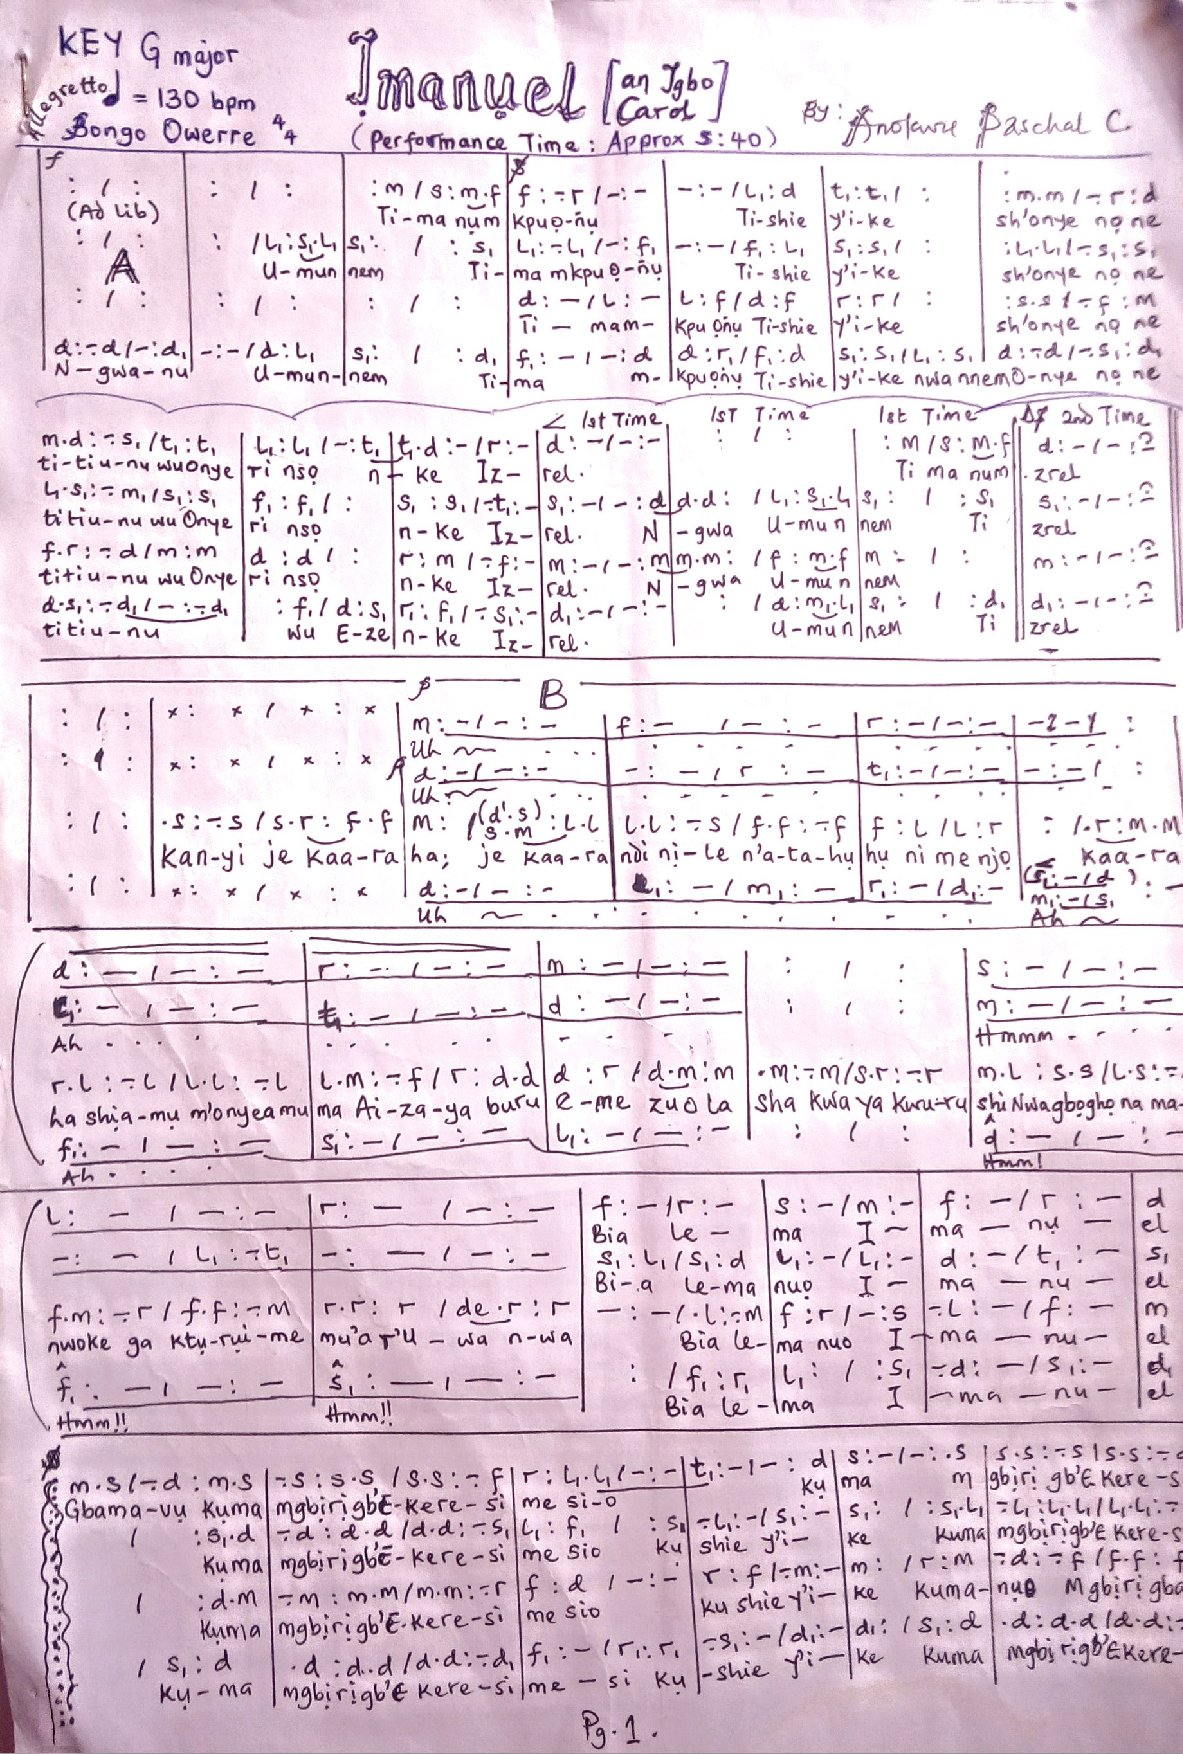 KEY G major
Allegretto ♩ = 130 bpm
Bongo Owerre 4/4
Imanuel [an Igbo Carol]
(Performance Time: Approx 5:40)
By: Anokwuru Paschal C.
f
: / : | : / : | : m / s : m.f | f : -.r / - : - | - : - / l₁ : d | t₁ : t₁ / : | : m.m / -.r : d
(Ad lib) Ti-ma nụm kpuọ-ñụ Ti-shie y'i-ke sh'onye nọ ne
: / : | : / l₁ : s₁.l₁ | s₁ : / : s₁ | l₁ : -.l₁ / - : f₁ | - : - / f₁ : l₁ | s₁ : s₁ / : | : l₁.l₁ / -.s₁ : s₁
A U-mun nem Ti-ma mkpuọ-ñụ Ti-shie y'i-ke sh'onye nọ ne
: / : | : / : | : / : | d : - / l : - | l : f / d : f | r : r / : | : s.s / -.f : m
Ti - mam- kpu ọñụ Ti-shie y'i-ke sh'onye nọ ne
d : -.d / - : d₁ | - : - / d : l₁ | s₁ : / : d₁ | f₁ : - / - : d | d : r₁ / f₁ : d | s₁ : s₁ / l₁ : s₁ | d : -.d / -.s₁ : d₁
N-gwa-nu U-mun-nem Ti-ma m-kpuọñụ Ti-shie y'i-ke nwa nnem O-nye nọ ne
1st Time 1st Time 1st Time 2nd Time
m.d : -.s₁ / t₁ : t₁ | l₁ : l₁ / - : t₁ | t₁.d : - / r : - | d : - / - : - | : / : | : m / s : m.f | d : - / - : -
ti-ti u-nu wu Onye ri nsọ n-ke Iz-rel. Ti ma num zrel
l₁.s₁ : -.m₁ / s₁ : s₁ | f₁ : f₁ / : | s₁ : s₁ / -.t₁ : - | s₁ : - / - : d | d.d : / l₁ : s₁.l₁ | s₁ : / : s₁ | s₁ : - / - : -
titiu-nu wu Onye ri nsọ n-ke Iz-rel. N-gwa U-mun nem Ti zrel
f.r : -.d / m : m | d : d / : | r : m / -.f : - | m : - / - : m | m.m : / f : m.f | m : / : | m : - / - : -
titiu-nu wu Onye ri nsọ n-ke Iz-rel. N-gwa U-mun nem
d.s₁ : -.d₁ / - : -.d₁ | : f₁ / d : s₁ | r₁ : f₁ / -.s₁ : - | d₁ : - / - : - | : / d : m₁.l₁ | s₁ : / : d₁ | d₁ : - / - : -
titiu-nu wu E-ze n-ke Iz-rel. U-mun nem Ti zrel
p B
: / : | x : x / x : x | m : - / - : - | f : - / - : - | r : - / - : - | - : - / :
Uh
: / : | x : x / x : x | d : - / - : - | - : - / r : - | t₁ : - / - : - | - : - / :
Uh
: / : | .s : -.s / s.r : f.f | m : / (d'.s) s.m : l.l | l.l : -.s / f.f : -.f | f : l / l : r | : / .r : m.m
Kan-yi je kaa-ra ha; je kaa-ra ndi nị-le n'a-ta-hụ hụ ni me njọ kaa-ra
: / : | x : x / x : x | d : - / - : - | l₁ : - / m₁ : - | r₁ : - / d₁ : - | (s₁ : - / d) m₁ : - / s₁ : -
Uh Ah
d : - / - : - | r : - / - : - | m : - / - : - | : / : | s : - / - : -
l₁ : - / - : - | t₁ : - / - : - | d : - / - : - | : / : | m : - / - : -
Ah Hmmm
r.l : -.l / l.l : -.l | l.m : -.f / r : d.d | d : r / d.m : m | .m : -.m / s.r : -.r | m.l : s.s / l.s : -
ha shịa-mụ m'onyeamu ma Ai-za-ya buru e-me zuo la sha kwa ya kwu-ru shi Nwagbọghọ na ma-
f₁ : - / - : - | s₁ : - / - : - | l₁ : - / - : - | : / : | d : - / - : -
Ah Hmm!
l : - / - : - | r : - / - : - | f : - / r : - | s : - / m : - | f : - / r : - | d
Bia le - ma I - ma - nu - el
- : - / l₁ : -.t₁ | - : - / - : - | s₁ : l₁ / s₁ : d | l₁ : - / l₁ : - | d : - / t₁ : - | s₁
Bi-a le-ma nuo I - ma - nu - el
f.m : -.r / f.f : -.m | r.r : r / de.r : r | - : - / .l : -.m | f : r / - : s | -.l : - / f : - | m
nwoke ga ktụ-rui-me mu'a r'u-wa n-wa Bia le-ma nuo I-ma-nu-el
f₁ : - / - : - | s₁ : - / - : - | : / f₁ : r₁ | l₁ : / : s₁ | -.d : - / s₁ : - | d₁
Hmm!! Hmm!! Bia le-ma I-ma-nu-el
m.s / -.d : m.s | -.s : s.s / s.s : -.f | r : l₁.l₁ / - : - | t₁ : - / - : d | s : - / - : .s | s.s : -.s / s.s : -
Gbama-vụ kụma mgbịrịgb'E-kere-si me si-o kụ ma m gbịrị gb'E kere-s
/ : s₁.d | -.d : d.d / d.d : -.s₁ | l₁ : f₁ / : s₁ | -.l₁ : - / s₁ : - | s₁ : / : s₁.l₁ | -.l₁ : l₁.l₁ / l₁.l₁ : -
Kụma mgbịrịgb'E-kere-si me sio kụ shie y'i-ke kụma mgbịrịgb'E kere-s
/ : d.m | -.m : m.m / m.m : -.r | f : d / - : - | r : f / -.m : - | m : / r : m | -.d : -.f / f.f : f
Kụma mgbịrịgb'E-kere-si me sio kụ shie y'i-ke kuma-nụọ Mgbịrị gba
/ s₁ : d | .d : d.d / d.d : -.d₁ | f₁ : - / r₁ : r₁ | -.s₁ : - / d₁ : - | d₁ : / s₁ : d | .d : d.d / d.d : -
kụ-ma mgbịrịgb'E kere-si me-si kụ-shie y'i-ke kụma mgbịrịgb'E kere-
Pg. 1.